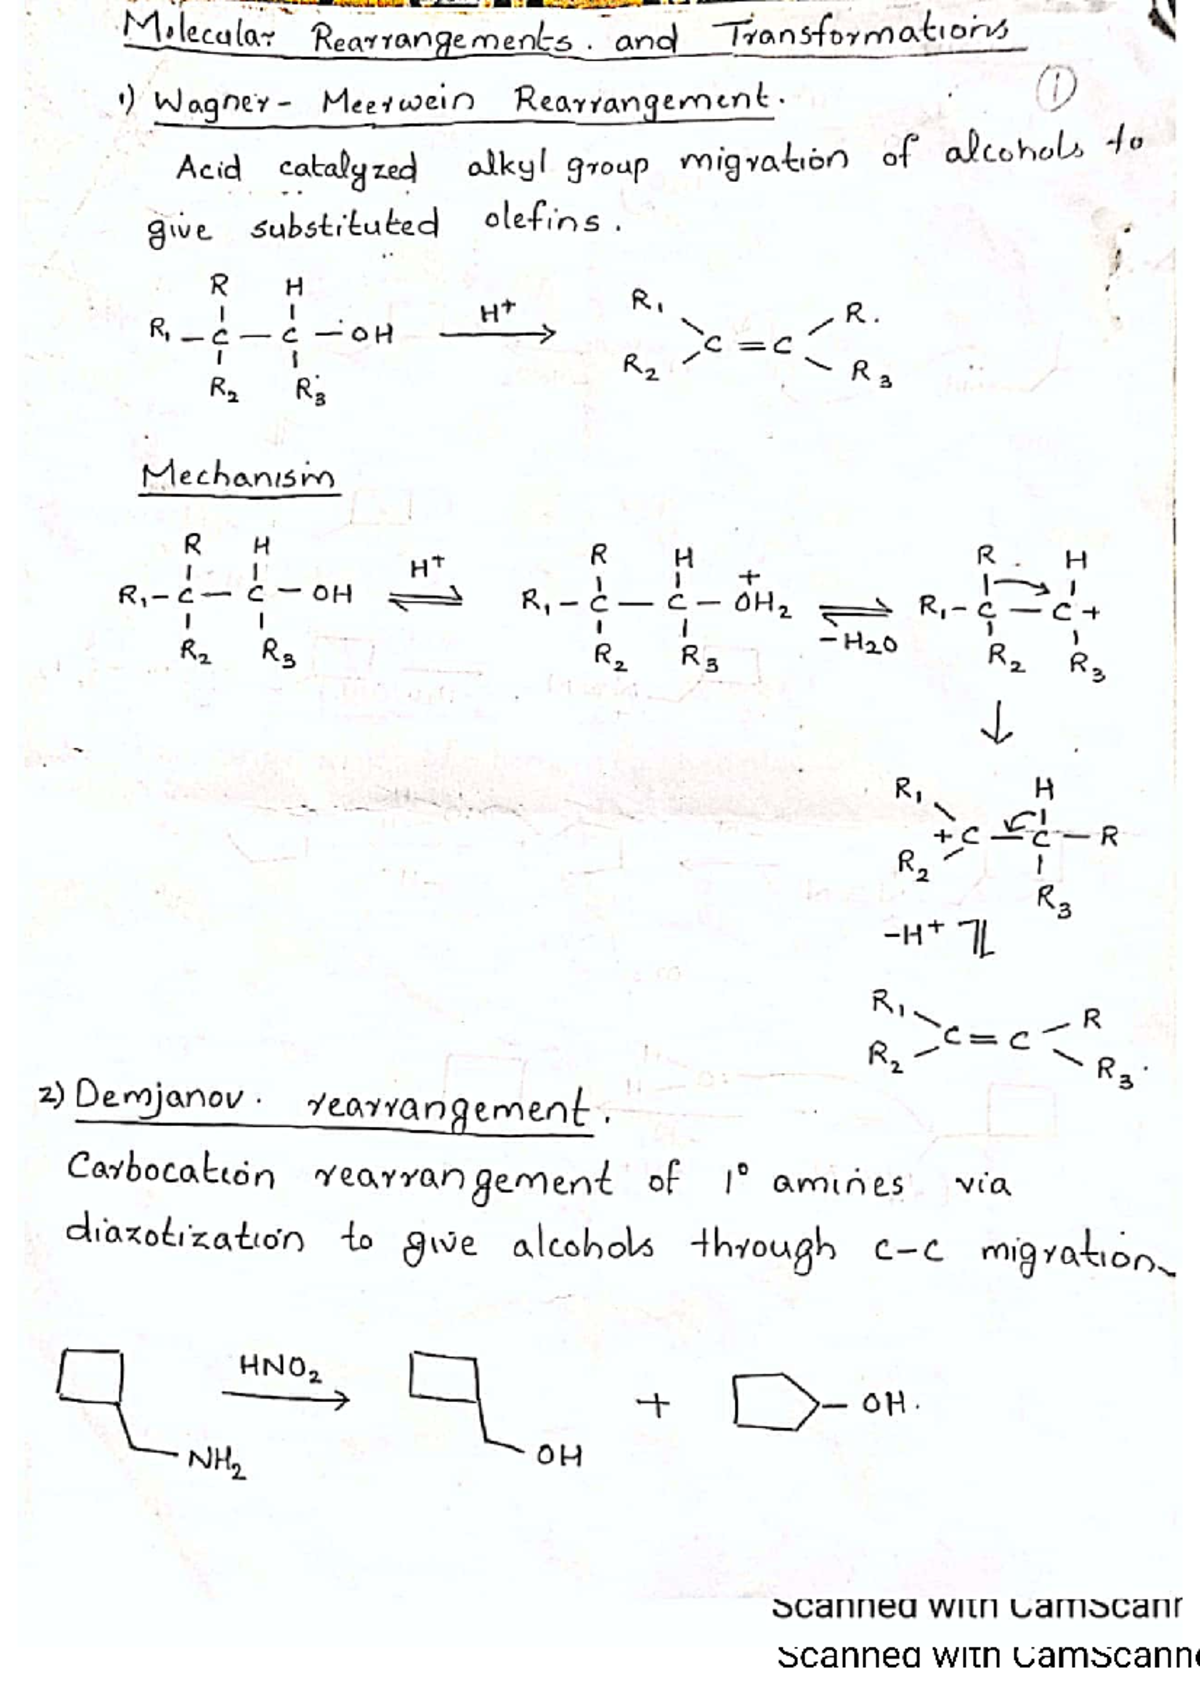 Molecular Rearrangements. and Transformations
①
1) Wagner- Meerwein Rearrangement.
Acid catalyzed alkyl group migration of alcohols to
give substituted olefins.
R H
R₁ - C - C - OH H+ R₁ R.
R₂ R₃ R₂ C = C R₃
Mechanism
R H H+ R H + R H
R₁ - C - C - OH R₁ - C - C - OH₂ R₁ - C - C +
R₂ R₃ R₂ R₃ -H₂O R₂ R₃
R₁ H
+ C - C - R
R₂ R₃
-H+
R₁ C = C R
R₂ R₃.
2) Demjanov. rearrangement.
Carbocation rearrangement of 1° amines via
diazotization to give alcohols through c-c migration
HNO₂
NH₂ OH + - OH.
Scanned with CamScanr
Scanned with CamScanne